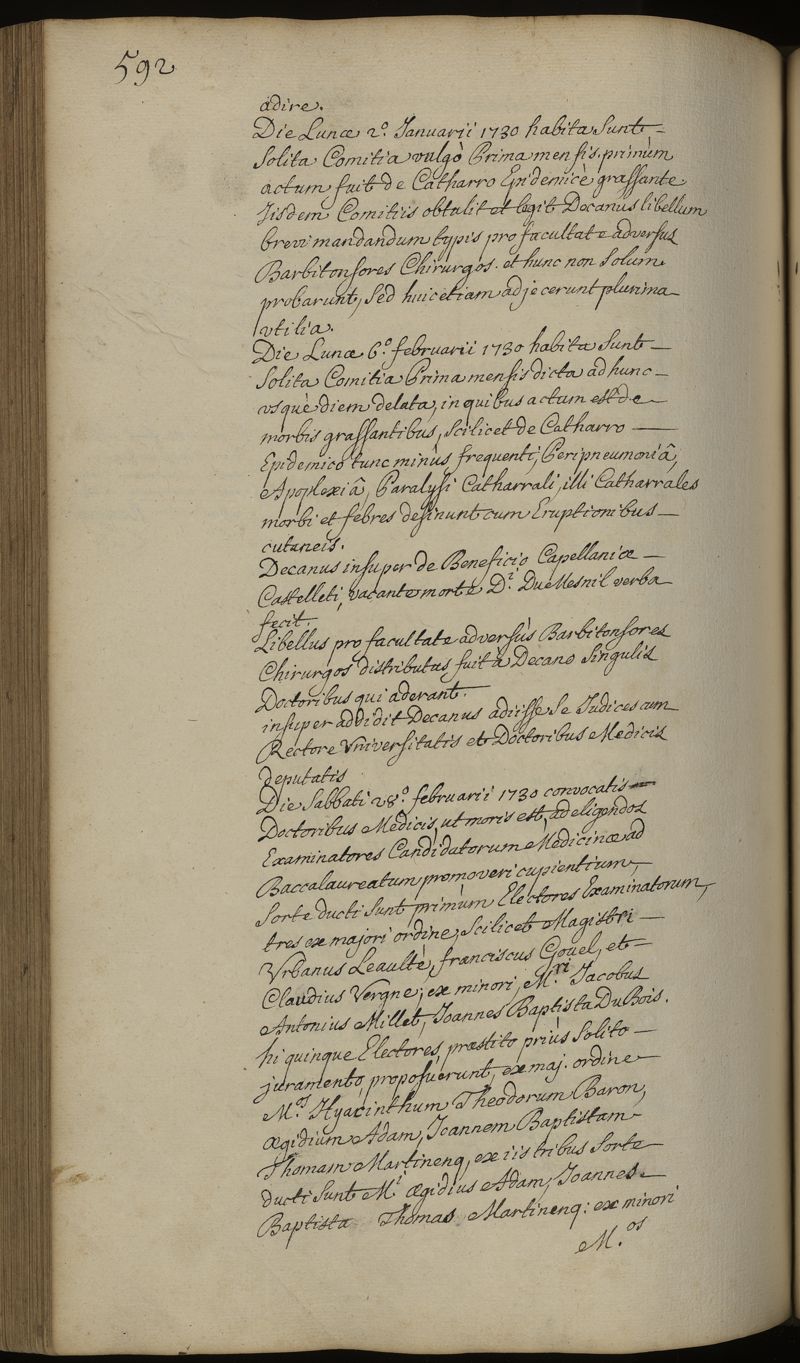 592
adire.
Die Lunæ 2.º Januarii 1730 habita Sunt
Solita Comitia vulgò Prima mensis. primùm
actum fuit de Catharro Epidemicè grassante
Iisdem Comitiis obtulit et legit Decanus libellum
brevi mandandum typis pro facultate adversus
Barbitonsores Chirurgos. et hunc non Solum
probarunt, Sed huic etiam adjecerunt plurima
utilia.
Die Lunæ 6.º februarii 1730 habita Sunt
Solita Comitia Prima mensis dicta ad hunc
usquè diem delata, in quibus actum est de
morbis grassantibus, Scilicet de Catharro
Epidemico tunc minùs frequenti, Peripneumoniâ,
Apoplexiâ, Paralysi Catharrali, illi Catharrales
morbi et febres desinunt cum Eruptionibus
cutaneis.
Decanus insuper de Beneficio Capellaniæ
Castelleti, vacante morte D.i DuMesnil verba
fecit.
Libellus pro facultate adversùs Barbitonsores
Chirurgos distributus fuit à Decano Singulis
Doctoribus qui aderant.
insuper addidit Decanus adiisse Se Judices cum
Rectore Universitatis et Doctoribus Medicis
deputatis
Die Sabbati 28.º februarii 1730 convocatis
Doctoribus Medicis, ut moris est, ad eligendos
Examinatores Candidatorum Medicinæ ad
Baccalaureatum promoveri cupientium,
Sorte ducti Sunt primùm Electores Examinatorum,
tres ex majori ordine, Scilicet Magistri
Urbanus Leaulté, franciscus Gouel, et
Claudius Vergne; ex minori, M.ri Jacobus
Antonius Millet, Joannes Baptista DuBois.
hi quinque Electores, præstito priùs Solito
juramento, proposuerunt, ex maj. ordine
M.os Hyacinthum Theodorum Baron,
Ægidium Adam, Joannem Baptistam
Thomam Martinenq, ex iis tribus Sorte
ducti Sunt M.i Ægidius Adam, Joannes
Baptista Thomas Martinenq: ex minori
M.os